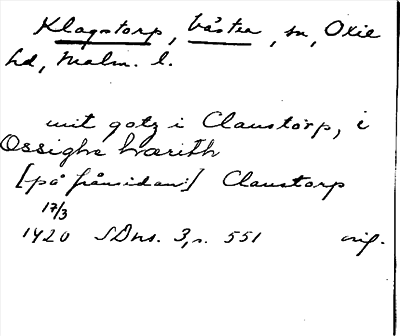 Klagstorp, Väster, sn, Oxie
hd, Malm. l.
mit gotz i Claustorp, i
Ossighe hærith
[på frånsidan:] Claustorp
17/3
1420 SDns. 3, s. 551 orig.